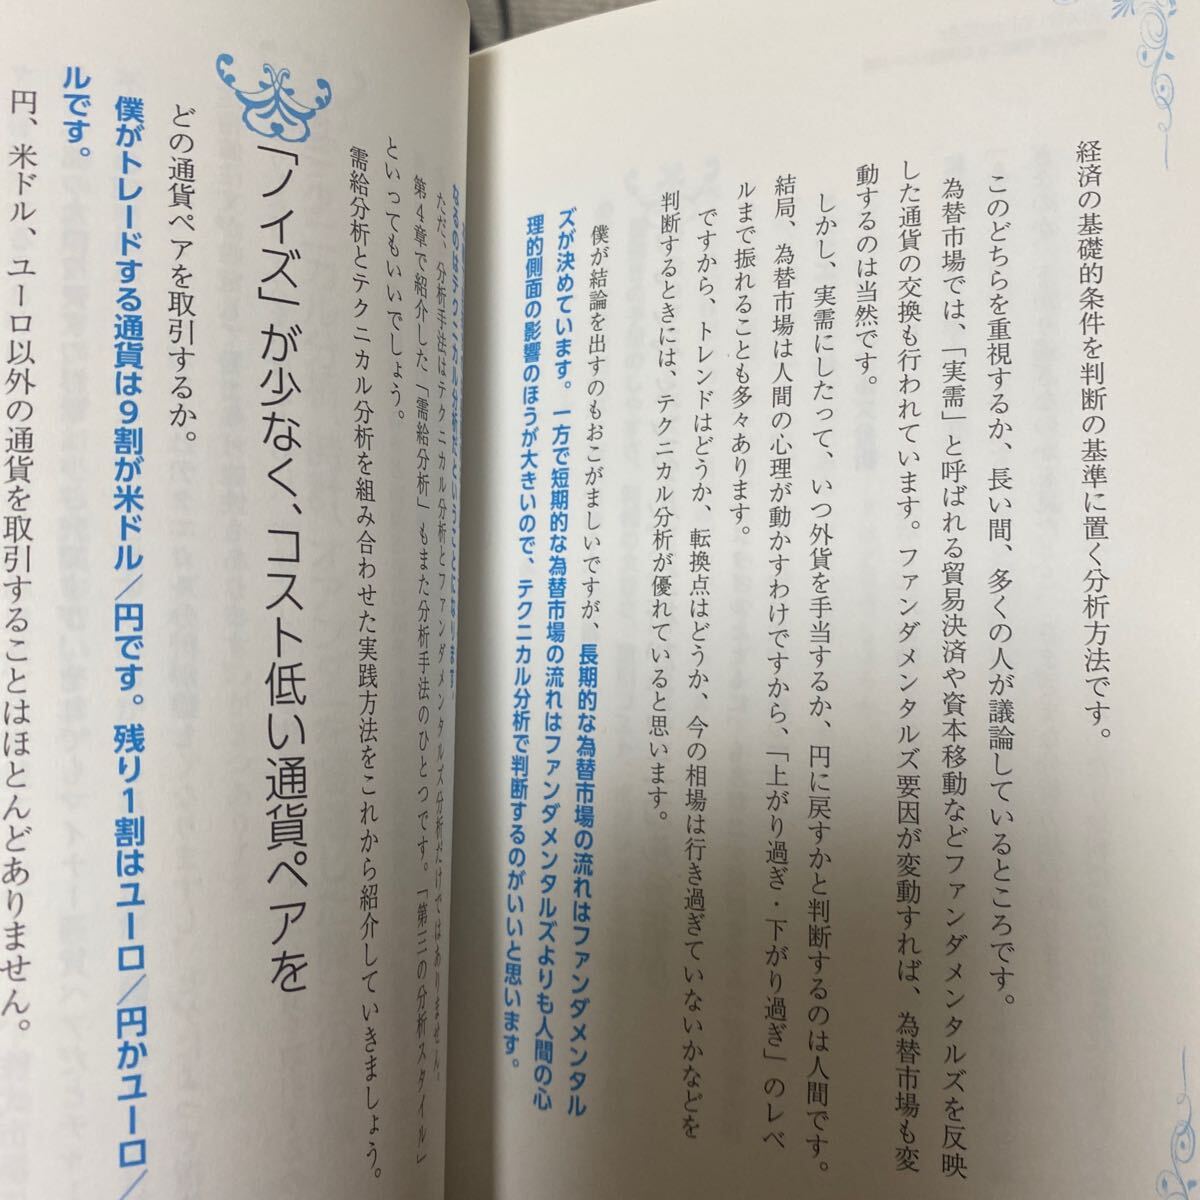 経済の基礎的条件を判断の基準に置く分析方法です。
このどちらを重視するか、長い間、多くの人が議論しているところです。
為替市場では、「実需」と呼ばれる貿易決済や資本移動などファンダメンタルズを反映
した通貨の交換も行われています。ファンダメンタルズ要因が変動すれば、為替市場も変
動するのは当然です。
しかし、実需にしたって、いつ外貨を手当するか、円に戻すかと判断するのは人間です。
結局、為替市場は人間の心理が動かすわけですから、「上がり過ぎ・下がり過ぎ」のレベ
ルまで振れることも多々あります。
ですから、トレンドはどうか、転換点はどうか、今の相場は行き過ぎていないかなどを
判断するときには、テクニカル分析が優れていると思います。
僕が結論を出すのもおこがましいですが、長期的な為替市場の流れはファンダメンタル
ズが決めています。一方で短期的な為替市場の流れはファンダメンタルズよりも人間の心
理的側面の影響のほうが大きいので、テクニカル分析で判断するのがいいと思います。
なるのはテクニカル分析だということになります。
ただ、分析手法はテクニカル分析とファンダメンタルズ分析だけではありません。
第4章で紹介した「需給分析」もまた分析手法のひとつです。「第三の分析スタイル」
といってもいいでしょう。
需給分析とテクニカル分析を組み合わせた実践方法をこれから紹介していきましょう。
「ノイズ」が少なく、コスト低い通貨ペアを
どの通貨ペアを取引するか。
僕がトレードする通貨は9割が米ドル/円です。残り1割はユーロ/円かユーロ/
ルです。
円、米ドル、ユーロ以外の通貨を取引することはほとんどありません。